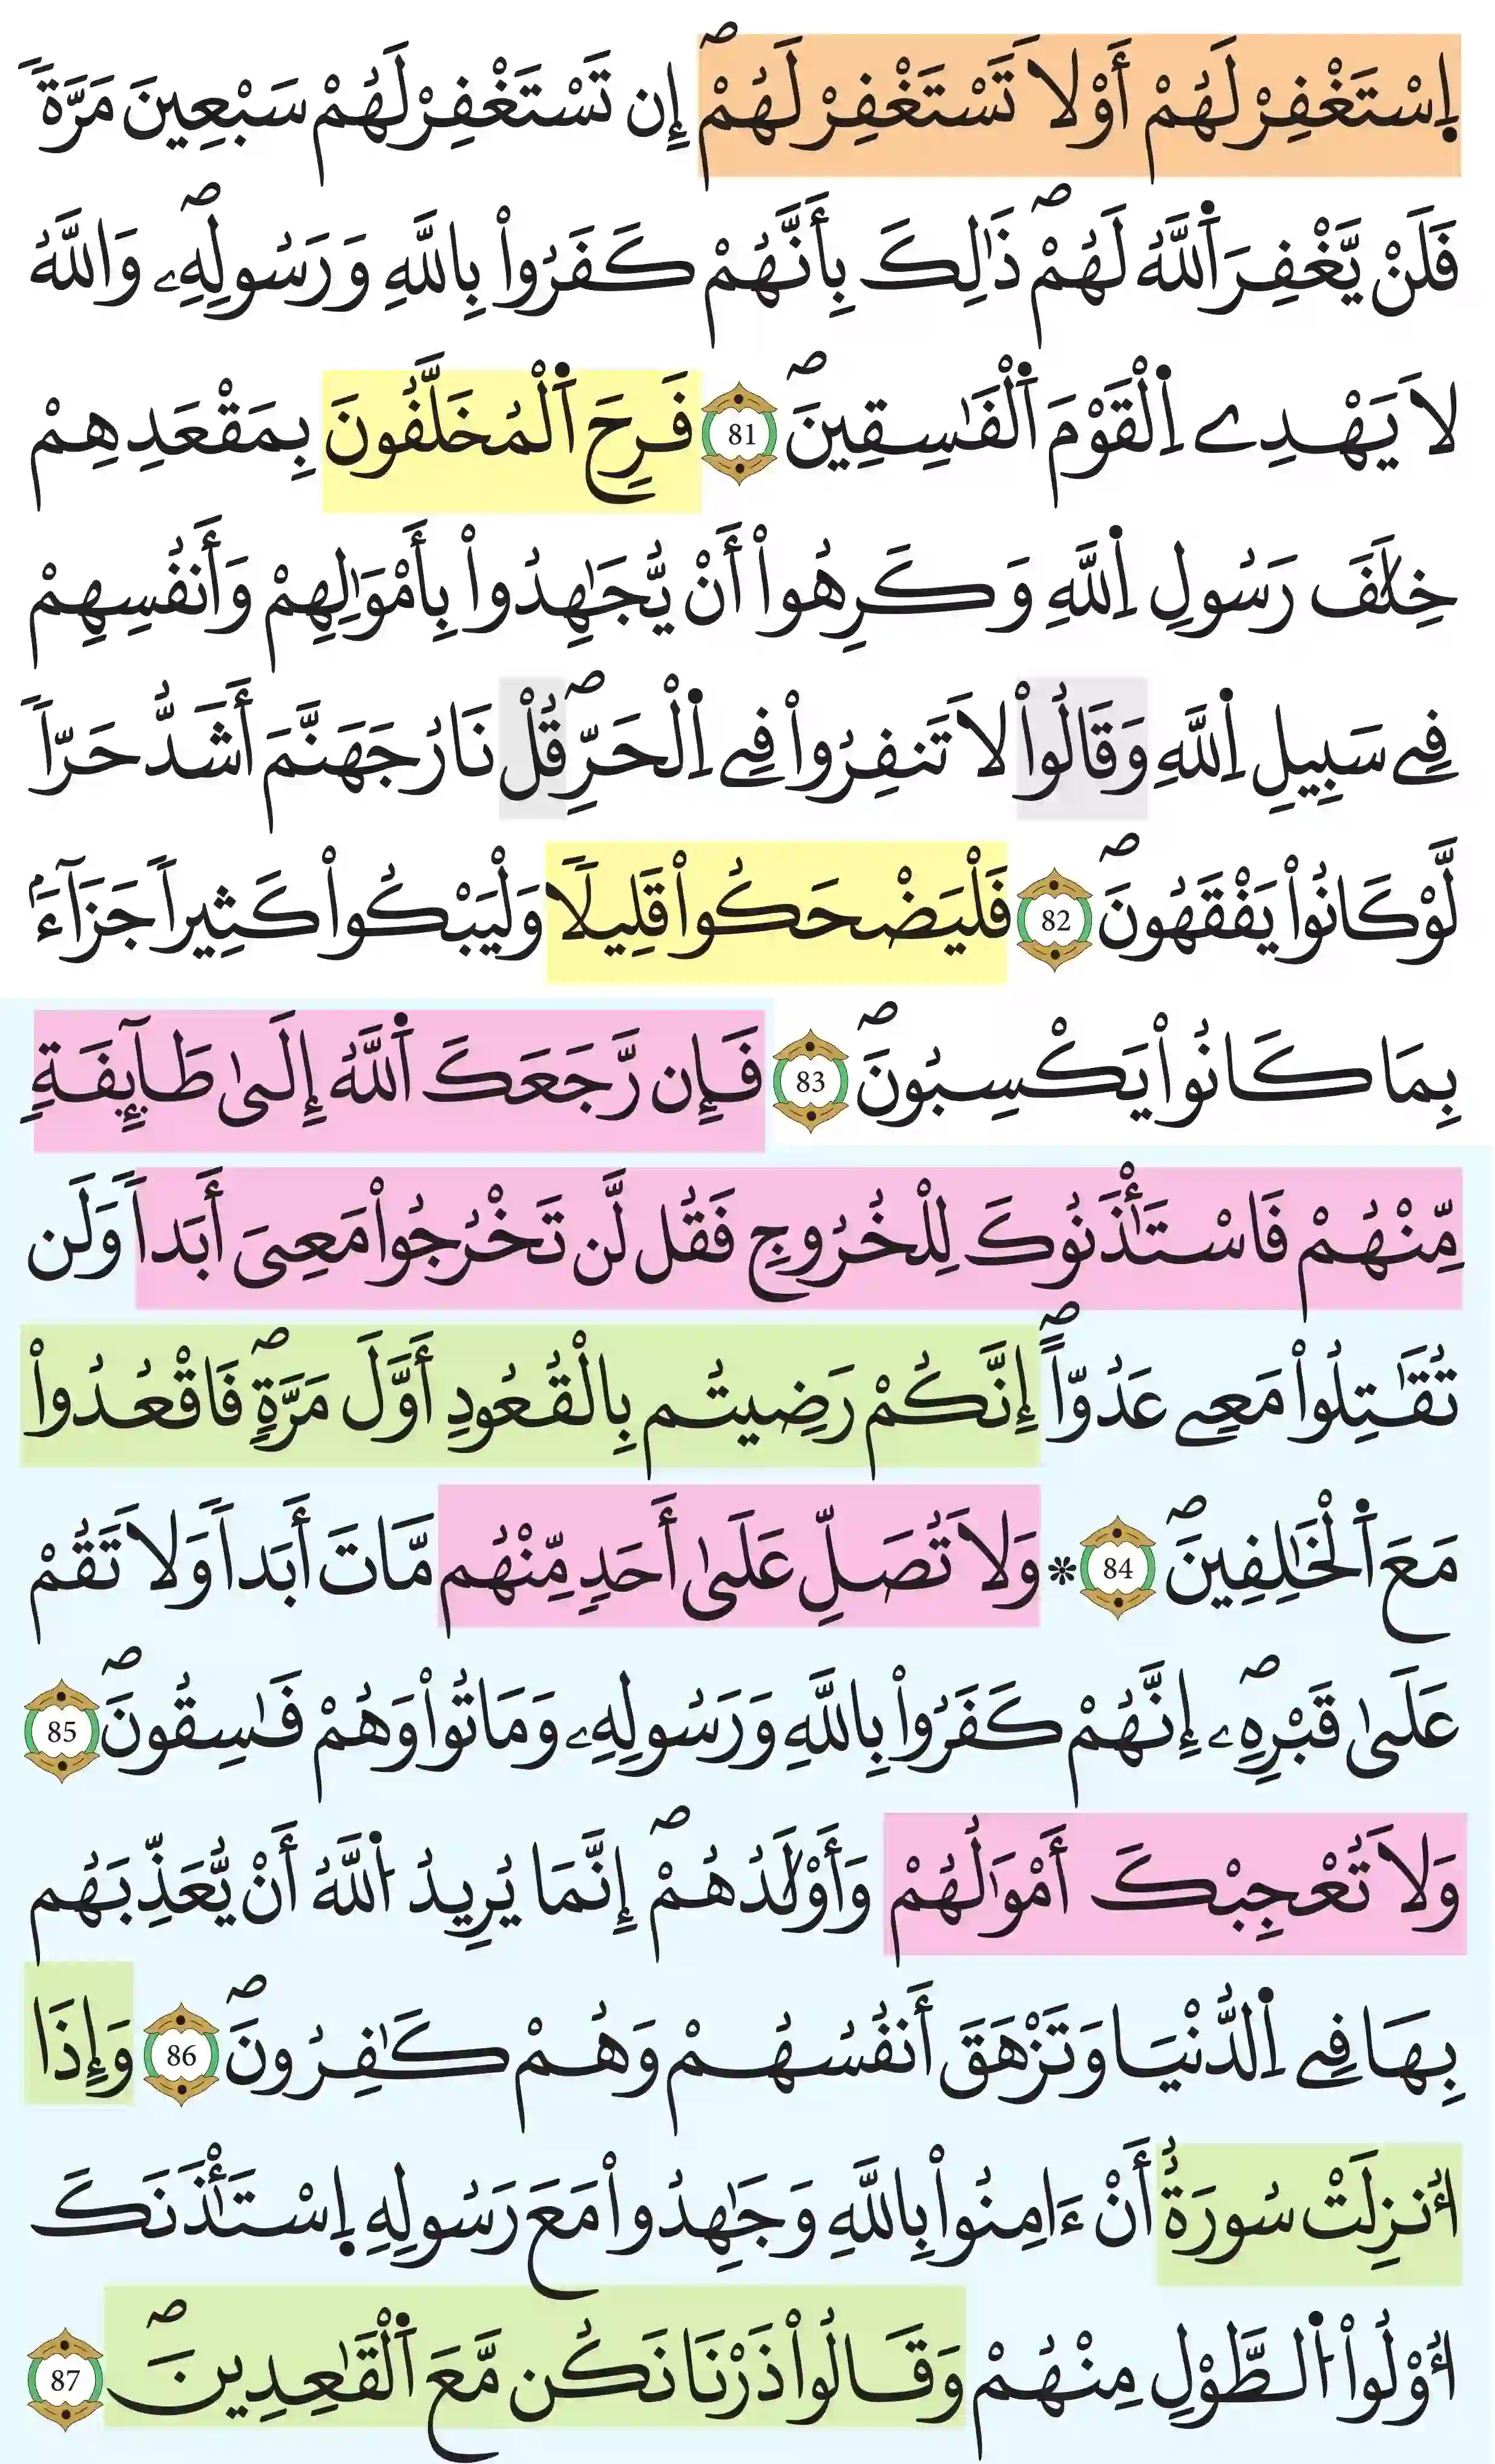 اِ۪سْتَغْفِرْ لَهُمْ أَوْ لَا تَسْتَغْفِرْ لَهُمْۖ إِن تَسْتَغْفِرْ لَهُمْ سَبْعِينَ مَرَّةٗ
فَلَنْ يَّغْفِرَ اَ۬للَّهُ لَهُمْۖ ذَٰلِكَ بِأَنَّهُمْ كَفَرُواْ بِاللَّهِ وَرَسُولِهِۦۖ وَاللَّهُ
لَا يَهْدِے اِ۬لْقَوْمَ اَ۬لْفَٰسِقِينَۖ 81 فَرِحَ اَ۬لْمُخَلَّفُونَ بِمَقْعَدِهِمْ
خِلَٰفَ رَسُولِ اِ۬للَّهِ وَكَرِهُواْ أَنْ يُّجَٰهِدُواْ بِأَمْوَٰلِهِمْ وَأَنفُسِهِمْ
فِے سَبِيلِ اِ۬للَّهِ وَقَالُواْ لَا تَنفِرُواْ فِے اِ۬لْحَرِّۖ قُلْ نَارُ جَهَنَّمَ أَشَدُّ حَرّاٗ
لَّوْ كَانُواْ يَفْقَهُونَۖ 82 فَلْيَضْحَكُواْ قَلِيلاٗ وَلْيَبْكُواْ كَثِيراٗ جَزَآءَۢ
بِمَا كَانُواْ يَكْسِبُونَۖ 83 فَإِن رَّجَعَكَ اَ۬للَّهُ إِلَىٰ طَآئِفَةٖ
مِّنْهُمْ فَاسْتَـْٔذَنُوكَ لِلْخُرُوجِ فَقُل لَّن تَخْرُجُواْ مَعِىَ أَبَداٗ وَلَن
تُقَٰتِلُواْ مَعِے عَدُوّاًۖ إِنَّكُمْ رَضِيتُم بِالْقُعُودِ أَوَّلَ مَرَّةٖۖ فَاقْعُدُواْ
مَعَ اَ۬لْخَٰلِفِينَۖ 84 ۞ وَلَا تُصَلِّ عَلَىٰ أَحَدٖ مِّنْهُم مَّاتَ أَبَداٗ وَلَا تَقُمْ
عَلَىٰ قَبْرِهِۦۖ إِنَّهُمْ كَفَرُواْ بِاللَّهِ وَرَسُولِهِۦ وَمَاتُواْ وَهُمْ فَٰسِقُونَۖ 85
وَلَا تُعْجِبْكَ أَمْوَٰلُهُمْ وَأَوْلَٰدُهُمْۖ إِنَّمَا يُرِيدُ اُ۬للَّهُ أَنْ يُّعَذِّبَهُم
بِهَا فِے اِ۬لدُّنْيَا وَتَزْهَقَ أَنفُسُهُمْ وَهُمْ كَٰفِرُونَۖ 86 وَإِذَا
أُنزِلَتْ سُورَةٌ أَنْ ءَامِنُواْ بِاللَّهِ وَجَٰهِدُواْ مَعَ رَسُولِهِ اِ۪سْتَـْٔذَنَكَ
أُوْلُواْ اُ۬لطَّوْلِ مِنْهُمْ وَقَالُواْ ذَرْنَا نَكُن مَّعَ اَ۬لْقَٰعِدِينَۖ 87